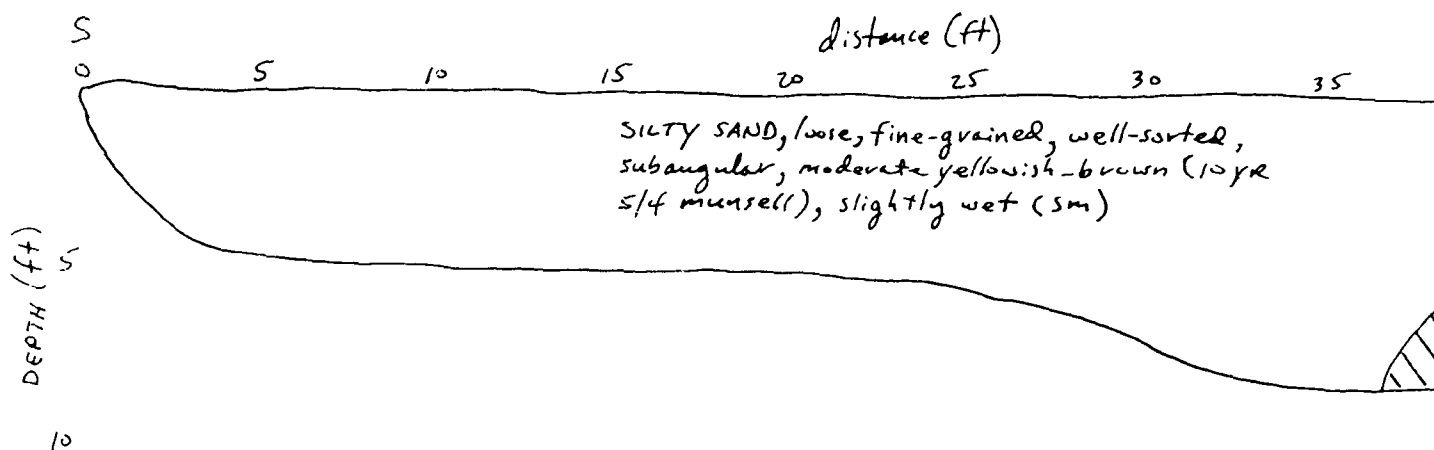 S
distance (ft)
0 5 10 15 20 25 30 35
SILTY SAND, loose, fine-grained, well-sorted,
subangular, moderate yellowish-brown (10 YR
5/4 munsell), slightly wet (SM)
5
DEPTH (ft)
10